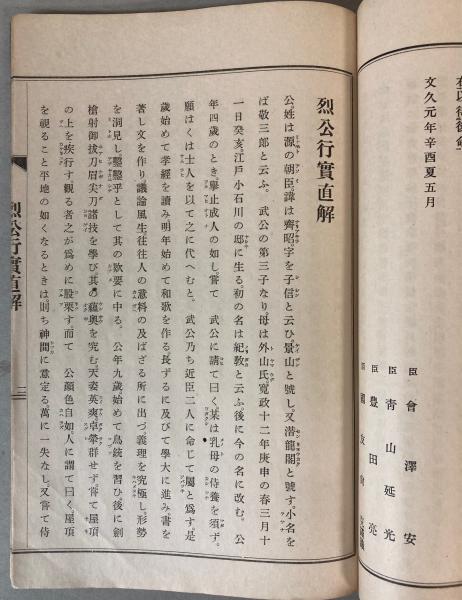 文久元年辛酉夏五月
臣 會澤安
臣 青山延光
臣 豊田亮
烈公行實直解
公、姓は源の朝臣、諱は齊昭、字を子信と云ひ、景山と號し、又潛龍閣と號す。小名を
ば敬三郎と云ふ。武公の第三子なり。母は外山氏、寛政十二年庚申の春三月十
一日癸亥、江戸小石川の邸に生る。初の名は紀敎と云ふ、後に今の名に改む。公
年四歳のとき、擧止成人の如し。嘗て 武公に請て曰く、某は乳母の侍養を須ず。
願はくは士人を以て之に代へむと。武公乃ち近臣二人に命じて屬と爲す。是
歳始めて孝經を讀み、明年始めて和歌を作る。長ずるに及びて學大に進み、書を
著し文を作り、議論風生、往往人の意料の及ばざる所に出づ。義理を究極し、形勢
を洞見し、鑿鑿乎として其の歘要に中る。公年九歳始めて鳥銃を習ひ、後に劍
槍射御拔刀眉尖刀諸技を學び、其の蘊奧を究む。天姿英爽卓犖群せず。嘗て屋頂
の上を疾行す、觀る者之が爲めに股栗す。而て 公顏色自如、人に謂て曰く、屋頂
を視ること平地の如くなるときは則ち神間に意定る、萬に一失なし。又嘗て侍
烈公行實直解
三